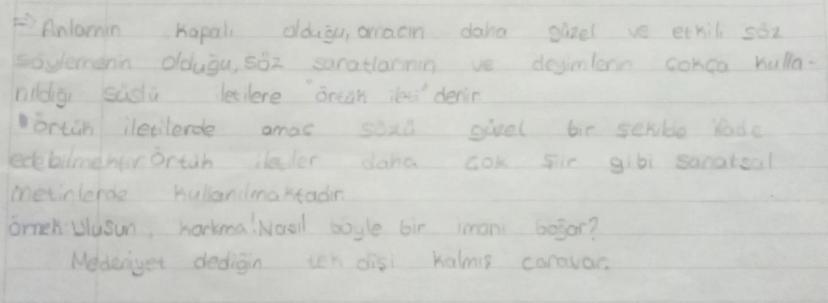 => Anlamın kapalı olduğu, amacın daha güzel ve etkili söz
söylemenin olduğu, söz sanatlarının ve deyimlerin çokça kulla-
nıldığı süslü iletilere "örtük ileti" denir.
• örtük iletilerde amaç sözü güzel bir şekilde ifade
edebilmektir örtük iletiler daha çok şiir gibi sanatsal
metinlerde kullanılmaktadır.
örnek: Ulusun, korkma! Nasıl böyle bir imanı boğar?
Medeniyet dediğin tek dişi kalmış canavar.